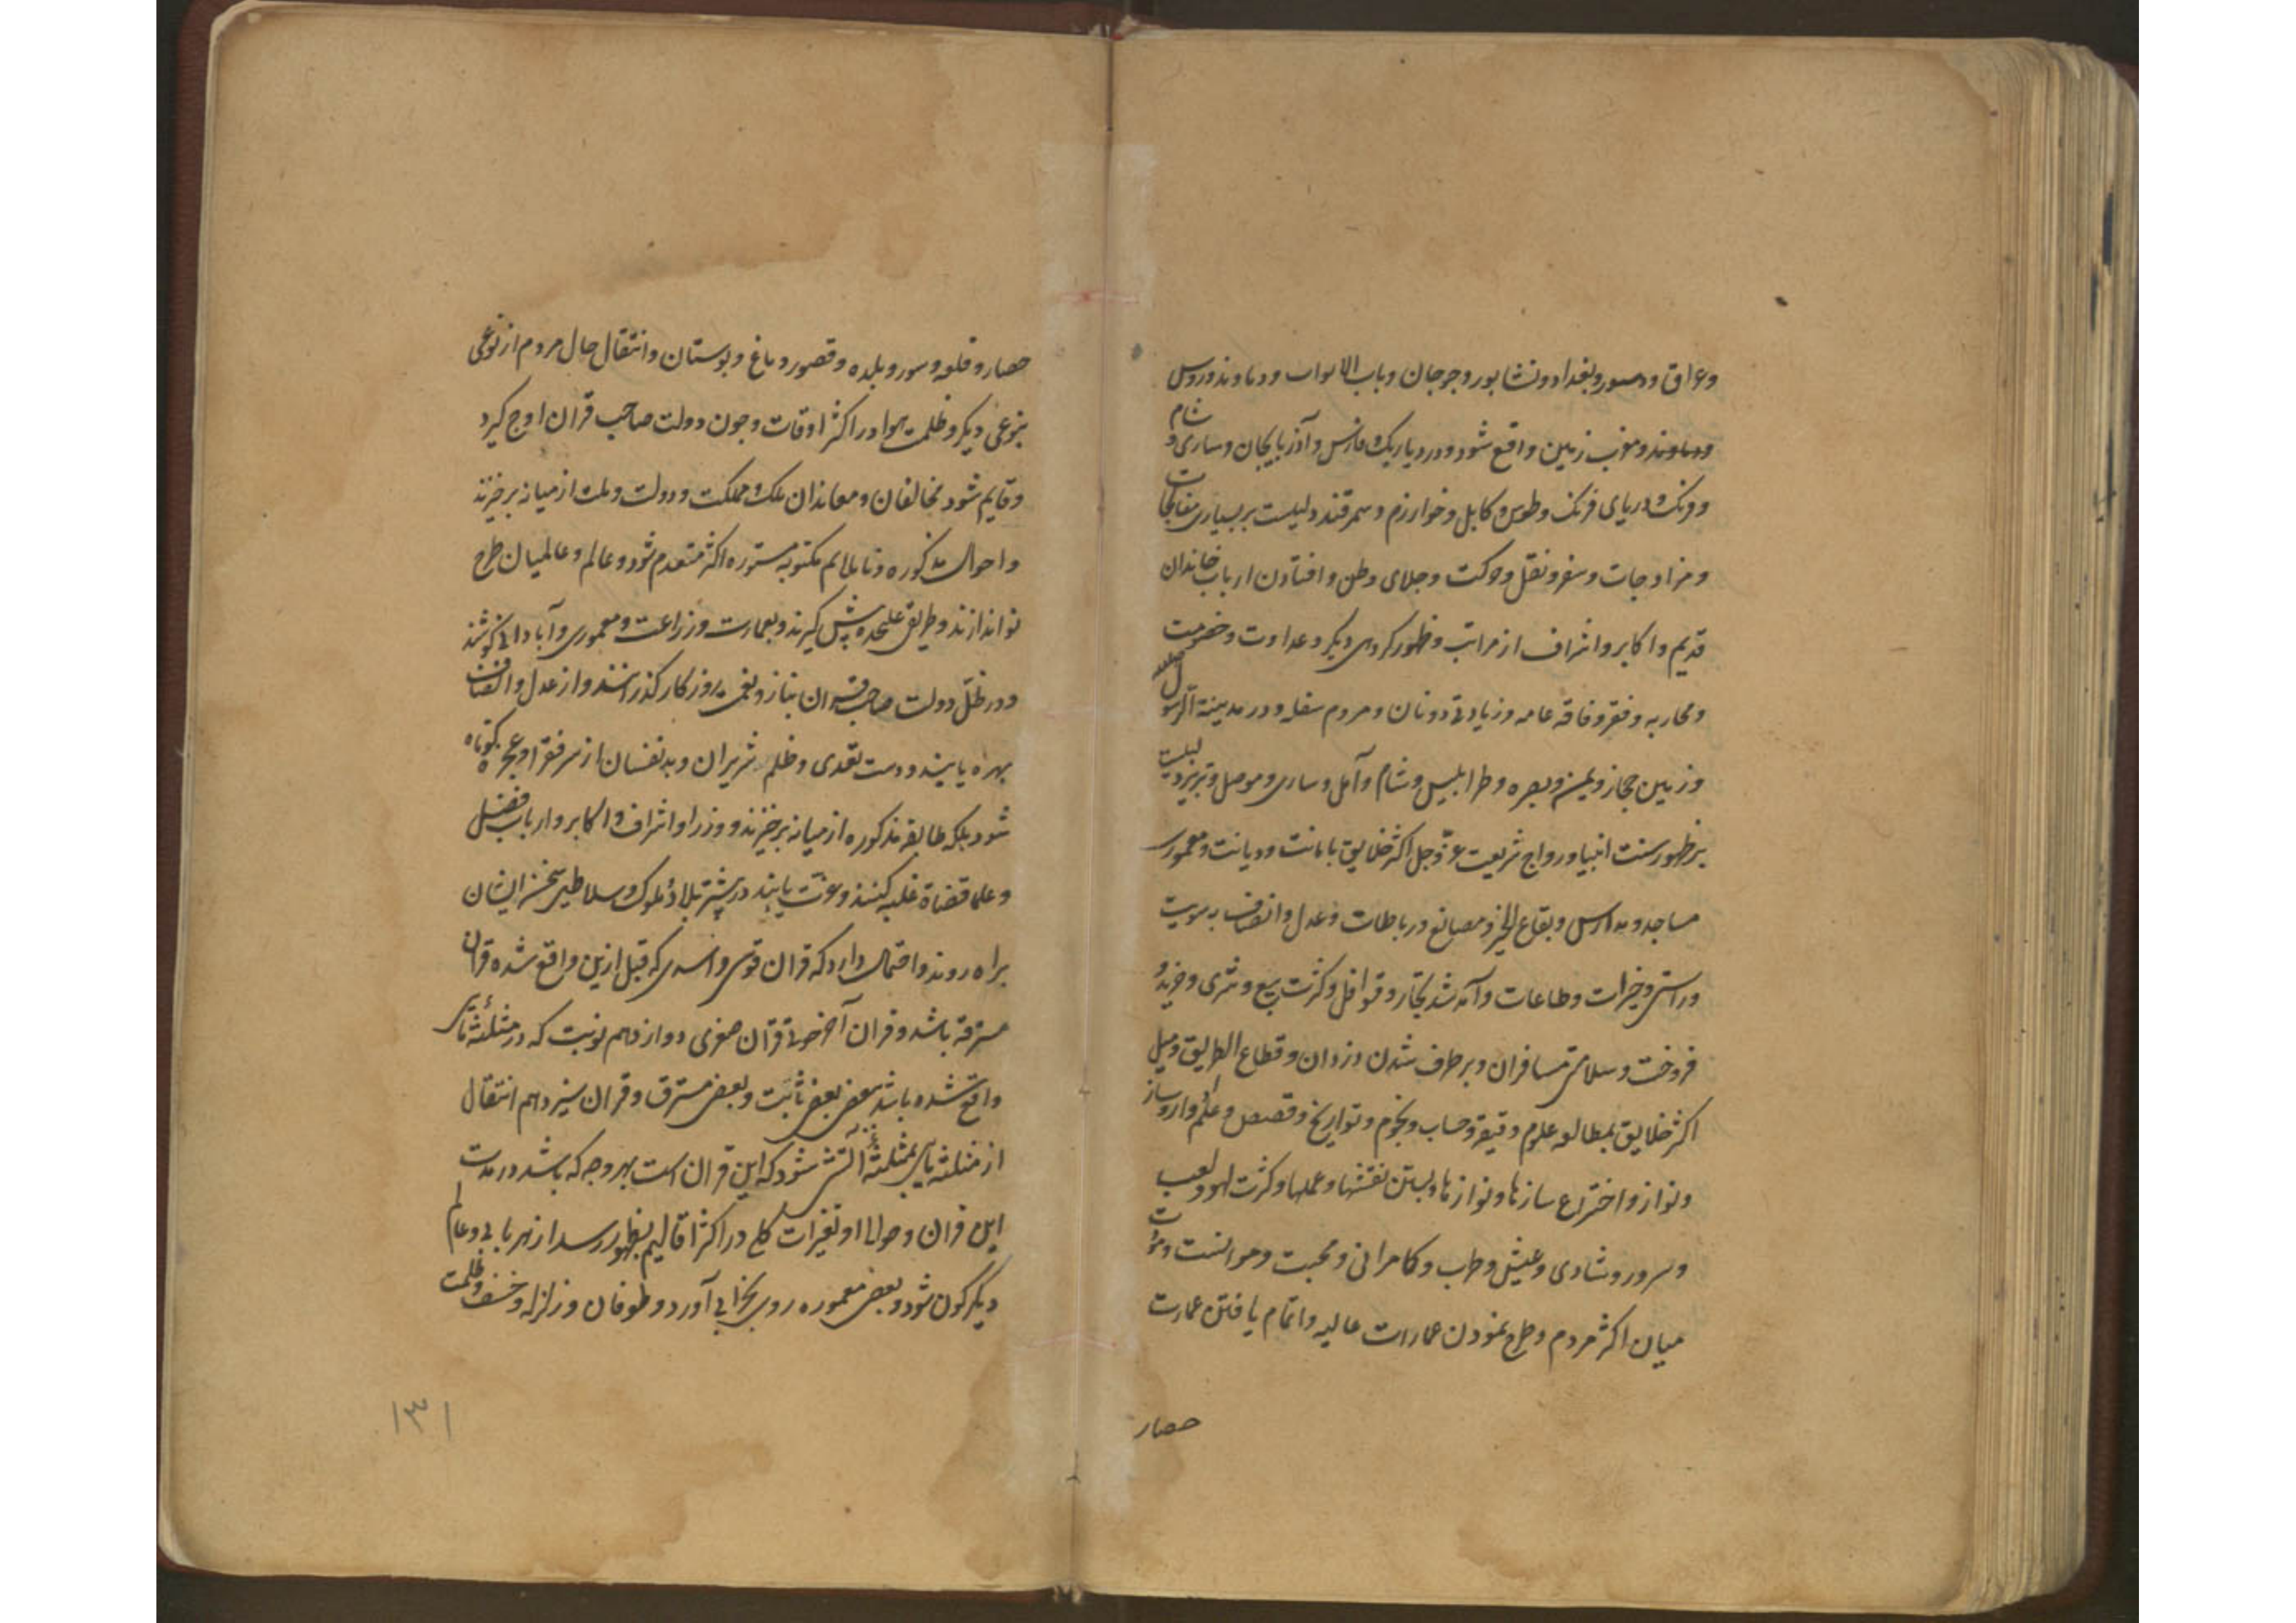 و عراق و مصر و بغداد و نشابور و جرجان و باب الابواب و دماوند و روس
و دماوند و مغرب زمین واقع شود و در دیار یک و فارس و آذربایجان و ساری و شام
و فرنک و دریای فرنک و طوس و کابل و خوارزم و سمرقند دلیلست بر بسیاری مفاجات
و مزاوجات و سفر و نقل و حرکت و جلای وطن و افتادن ارباب خاندان
قدیم و اکابر و اشراف از مراتب و ظهور کردهی دیگر و عداوت و خصومت
و محاربه و فقر و فاقه عامه و زیادتی دونان و مردم سفله و در مدینة الرسول
و زمین حجاز و یمن و بصره و طرابلیس و شام و آمل و ساری و موصل و تبریز دلیلست
بر ظهور سنت انبیا و رواج شریعت عز و جل اکثر خلایق با مانت و دیانت و معموری
مساجد و مدارس و بقاع الخیر و مصانع و رباطات و عدل و انصاف به سویت
و راستی و خیرات و طاعات و آمد شد تجار و قوافل و کثرت بیع و شری و خرید و
فروخت و سلامتی مسافران و برطرف شدن دزدان و قطاع الطریق و میل
اکثر خلایق بمطالعه علوم دقیقه و حساب و نجوم و تواریخ و قصص و علم و ساز
و نواز و اختراع سازها و نوازها و بستن نقشها و عملها و کثرت لهو و لعب
و سرور و شادی و عیش و طرب و کامرانی و محبت و موانست
میان اکثر مردم و طرح نمودن عمارات عالیه و اتمام یافتن عمارت
حصار
حصار و قلعه و سور و بلده و قصور و باغ و بوستان و انتقال حال مردم از نوعی
بنوعی دیگر و ظلمت هوا در اکثر اوقات و چون دولت صاحب قران اوج گیرد
و قایم شود مخالفان و معاندان ملک و مملکت و دولت و ملت از میانه برخیزند
و احوال مذکوره و ناملایم مکتوبه مستوره اکثر منعدم شود و عالم و عالمیان طرح
نو اندازند و طریق علیحده پیش گیرند و بعمارت و زراعت و معموری و آبادانی کوشند
و در ظل دولت صاحب قران بناز و نعیم روزکار کذرانند و از عدل و انصاف
بهره یابند و دست تعدی و ظلم شریران و بد نفسان از سر فقرا و عجزه کوتاه
شود بلکه طایفه مذکوره از میانه برخیزند و وزرا و اشراف و اکابر و ارباب فضل
و علما قضاة غلبه کنند و عزت یابند در بیشتر بلاد و ملوک و سلاطین سخن ایشان
براه روند و احتمال دارد که قران قوس و اسدی که قبل ازین واقع شده قران
مسترقه باشد و قران آخر حوتی قران صغری دوازدهم نوبت که در مثلثه
واقع شده باشد بعضی ثابت و بعضی مسترق و قران سیزدهم انتقال
از مثلثه بمثلثه آتش شود که این قران است بهر وجه که باشد در مدت
این قران و حوالی او تغیرات کلی در اکثر اقالیم بظهور رسد از هر بابی و عالم
دیگرگون شود و بعضی معموره روی بخرابی آورد و طوفان و زلزله و خسف و ظلمت
۱۳۱